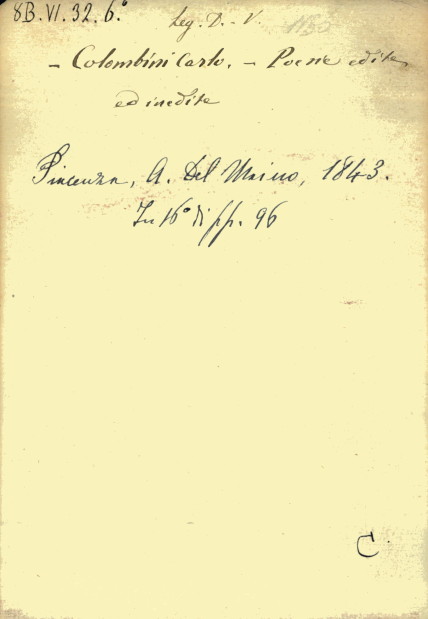 8B.VI.32.6°
Leg. D. - V.
- Colombini Carlo. - Poesie edite
ed inedite
Piacenza, A. Del Maino, 1843.
In 16° di pp. 96
C